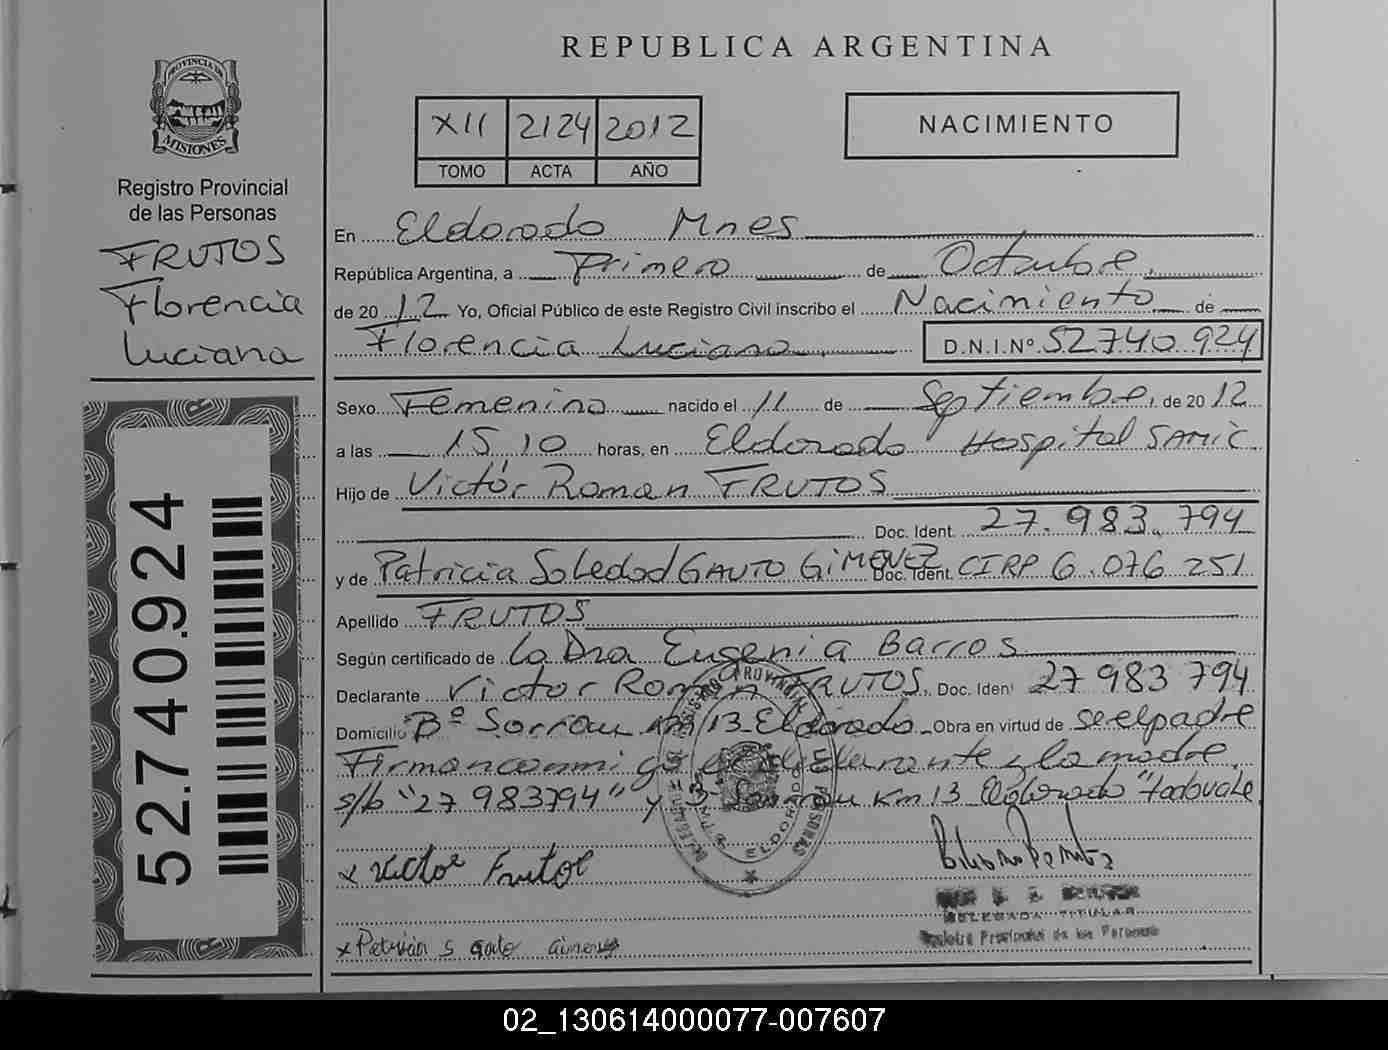 REPUBLICA ARGENTINA
PROVINCIA DE
MISIONES
Registro Provincial
de las Personas
FRUTOS
Florencia
Luciana
52.740.924
XII 2124 2012
TOMO ACTA AÑO
NACIMIENTO
En Eldorado Mnes
República Argentina, a Primero de Octubre
de 20 12 Yo, Oficial Público de este Registro Civil inscribo el Nacimiento de
Florencia Luciana D.N.I.Nº 52740924
Sexo Femenino nacido el 11 de Septiembre, de 20 12
a las 15,10 horas, en Eldorado Hospital SAMIC
Hijo de Victor Roman FRUTOS
Doc. Ident. 27.983.794
y de Patricia Soledad GAUTO GIMENEZ Doc. Ident. CIRP 6.076 251
Apellido FRUTOS
Según certificado de la Dra Eugenia Barros
Declarante Victor Roman FRUTOS, Doc. Iden 27 983 794
Domicilio Bº Sarrau Km 13 Eldorado Obra en virtud de se el padre
Firman conmigo el declarante y la madre
s/b "27 983794" y Bº Sarrau Km 13 Eldorado "todo vale
x Victor Frutos
DELEGADA TITULAR
Registro Provincial de las Personas
x Patricia S
ELDORADO
02_130614000077-007607